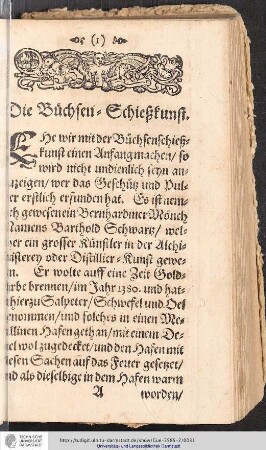 (1)
Die Büchsen-Schießkunst.
EHe wir mit der Büchsenschieß-
kunst einen Anfang machen/ so
wird nicht undienlich seyn an-
zeigen/ wer das Geschütz und Pul-
er erstlich erfunden hat. Es ist nem-
ch gewesen ein Bernhardiner Mönch
Namens Barthold Schwartz/ wel-
her ein grosser Künstler in der Alchi-
misterey oder Distillier-Kunst gewe-
en. Er wolte auff eine Zeit Gold-
arbe brennen/ im Jahr 1380. und hat-
hierzu Salpeter/ Schwefel und Oel
enommen/ und solches in einen Me-
llinen Hafen gethan/ mit einem De-
el wol zugedecket/ und den Hafen mit
iesen Sachen auf das Feuer gesetzet/
nd als dieselbige in dem Hafen warm
A worden/
TECHNISCHE
UNIVERSITÄT
DARMSTADT
Universitäts- und Landesbibliothek Darmstadt